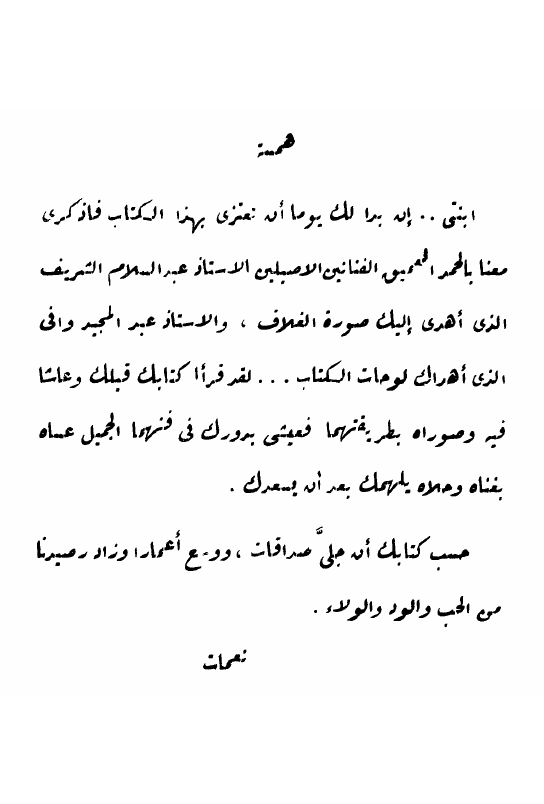 همسة
ابنتى .. إن بدا لك يوما أن تعتزى بهذا الكتاب فاذكرى
معنا بالحمد العميق الفنانين الاصيلين الاستاذ عبد السلام الشريف
الذى أهدى إليك صورة الغلاف ، والاستاذ عبد المجيد وافى
الذى أهداك لوحات الكتاب ... لقد قرأا كتابك قبلك وعاشا
فيه وصوراه بطريقتهما فعيشى بدورك فى فنهما الجميل عساه
بغناه وحلاه يلهمك بعد أن يسعدك .
حسب كتابك أن جلىَّ صداقات ، ووسع أعمارا وزاد رصيدنا
من الحب والود والولاء .
نعمات